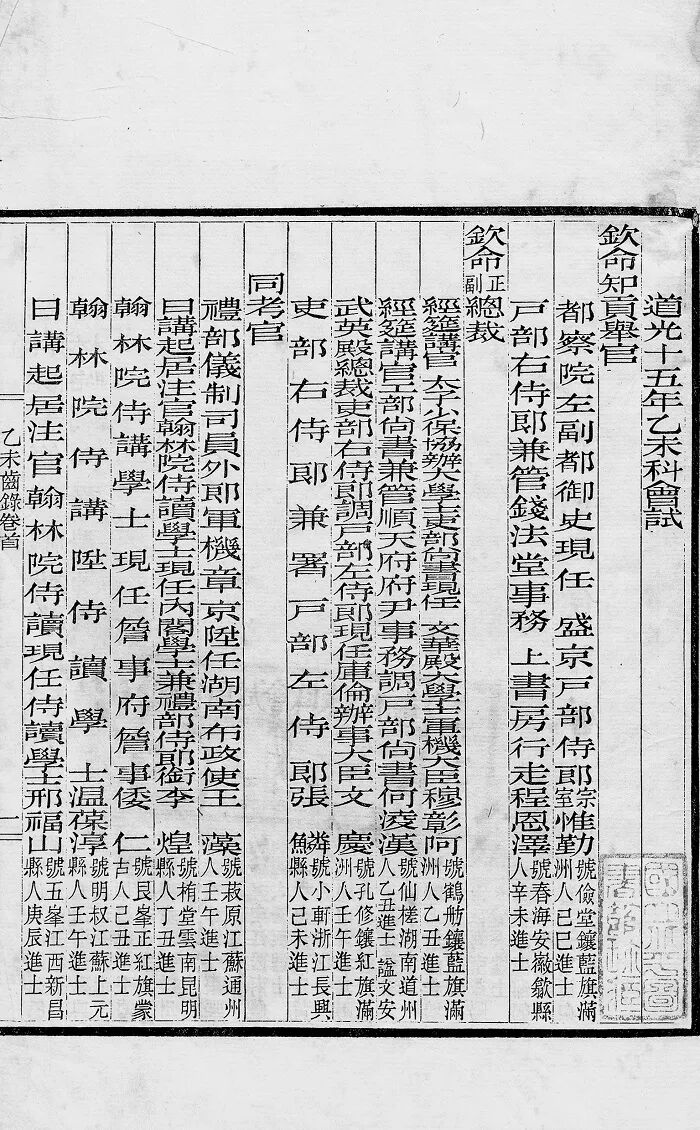 道光十五年乙未科會試
欽命知貢舉官
都察院左副都御史現任 盛京戸部侍郎宗室惟勤號儉堂鑲藍旗滿洲人己巳進士
戸部右侍郎兼管錢法堂事務 上書房行走程恩澤號春海安徽歙縣人辛未進士
欽命正副總裁
經筵講官 太子少保協辦大學士吏部尚書現任 文華殿大學士軍機大臣穆彰阿號鶴舫鑲藍旗滿洲人乙丑進士
經筵講官工部尚書兼管順天府府尹事務調戸部尚書何淩漢號仙槎湖南道州人乙丑進士 諡文安
武英殿總裁吏部右侍郎調戸部左侍郎現任庫倫辦事大臣文慶號孔修鑲紅旗滿洲人壬午進士
吏部右侍郎兼署戸部左侍郎張鱗號小軒浙江長興縣人己未進士
同考官
禮部儀制司員外郎軍機章京陞任湖南布政使王藻號菽原江蘇通州人壬午進士
日講起居注官翰林院侍讀學士現任內閣學士兼禮部侍郎銜李煌號栯堂雲南昆明縣人丁丑進士
翰林院侍講學士現任詹事府詹事倭仁號艮峯正紅旗蒙古人己丑進士
翰林院侍講陞侍讀學士溫葆淳號明叔江蘇上元縣人壬午進士
日講起居注官翰林院侍讀現任侍讀學士邢福山號五峯江西新昌縣人庚辰進士
乙未齒錄卷首
一